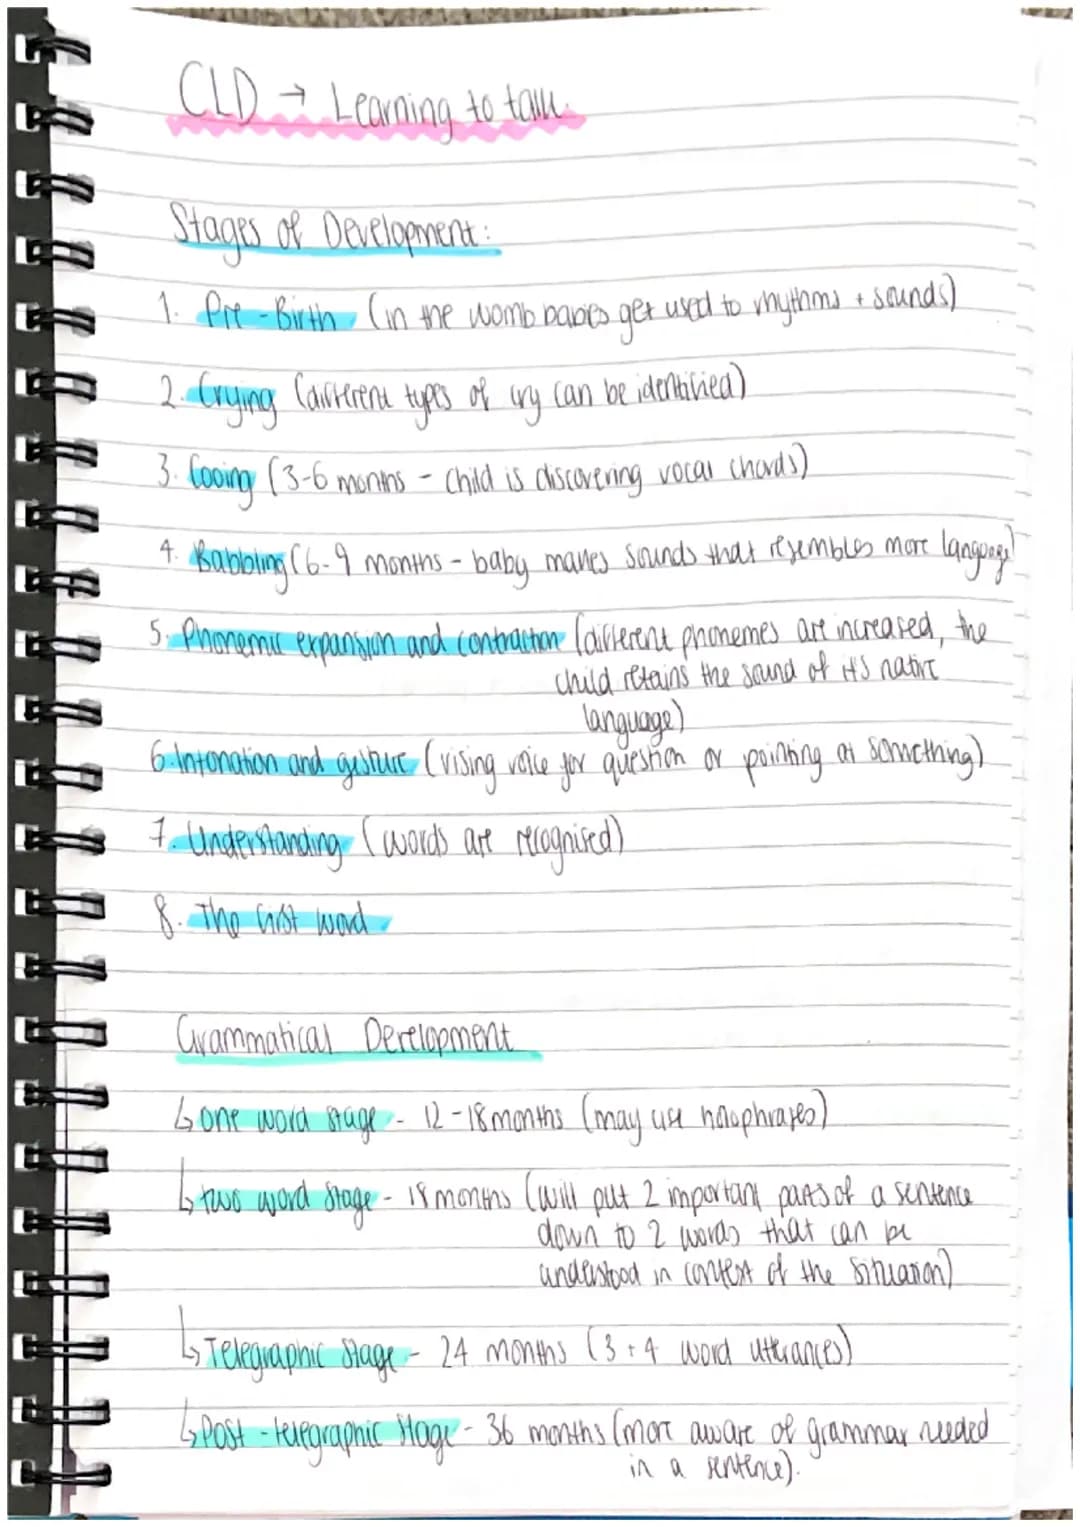 CLD → Learning to talk.
Stages of Development:
1. Pre-Birth (in the womb babies get used to rhythms + sounds)
2. Crying (different types of cry can be identified)
3. Cooing (3-6 months - child is discovering vocal chords)
4. Babbling (6-9 months - baby makes sounds that resembles more language)
5. Phonemic expansion and contraction (different phonemes are increased, the
child retains the sound of it's native
language)
6. Intonation and gesture (rising voice for question or pointing at something)
7. Understanding (words are recognised)
8. The first word
Grammatical Development
↳ one word stage - 12-18 months (may use holophrases)
↳ two word stage - 18 months (will put 2 important parts of a sentence
down to 2 words that can be
understood in context of the situation)
↳ Telegraphic stage - 24 months (3+4 word utterances)
↳ Post-telegraphic stage - 36 months (more aware of grammar needed
in a sentence).